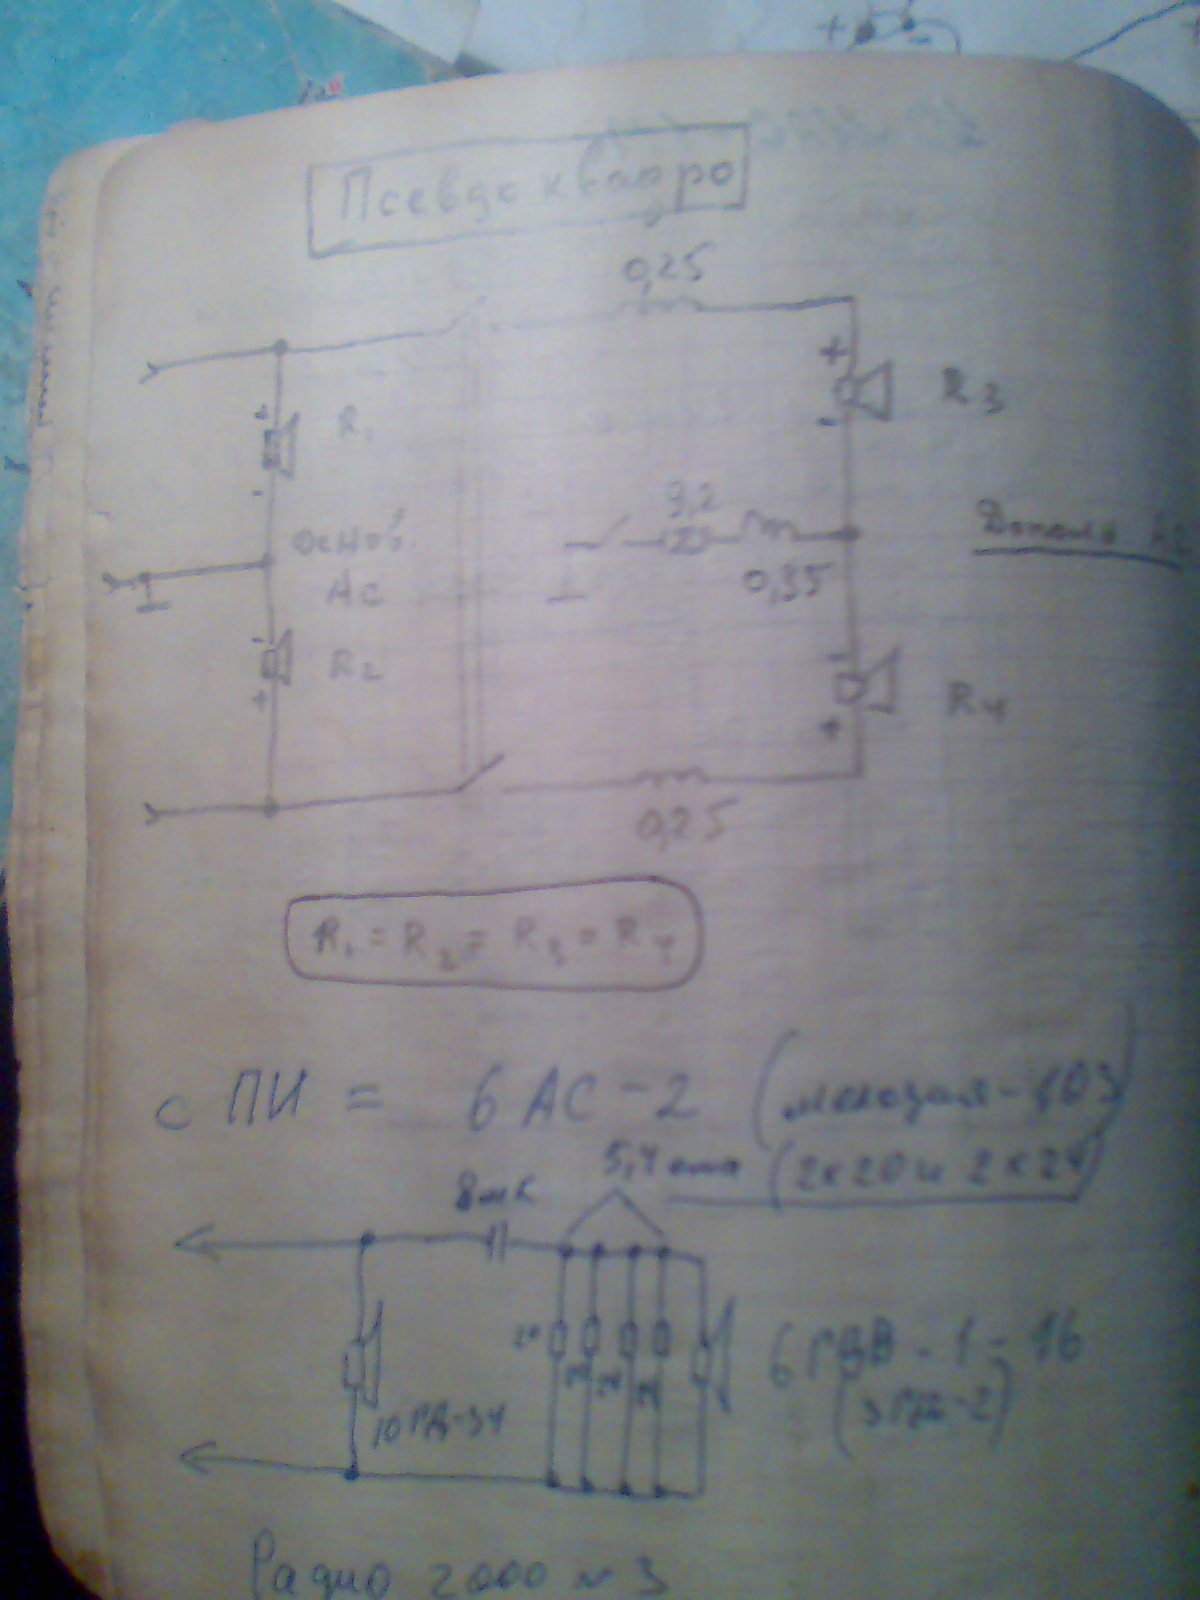 Псевдоквадро
0,25
+
-
R3
+
-
R1
9,2
Основ.
АС
0,35
Дополн
-
+
R2
-
+
R4
0,25
R1 = R2 = R3 = R4
с ПИ = 6 АС - 2 (мелодия - 103)
5,4 ома (2х20 и 2х24)
8мк
20
10ГД-34
6ГДВ - 1 - 16
(3ГД-2)
Радио 2000 № 3